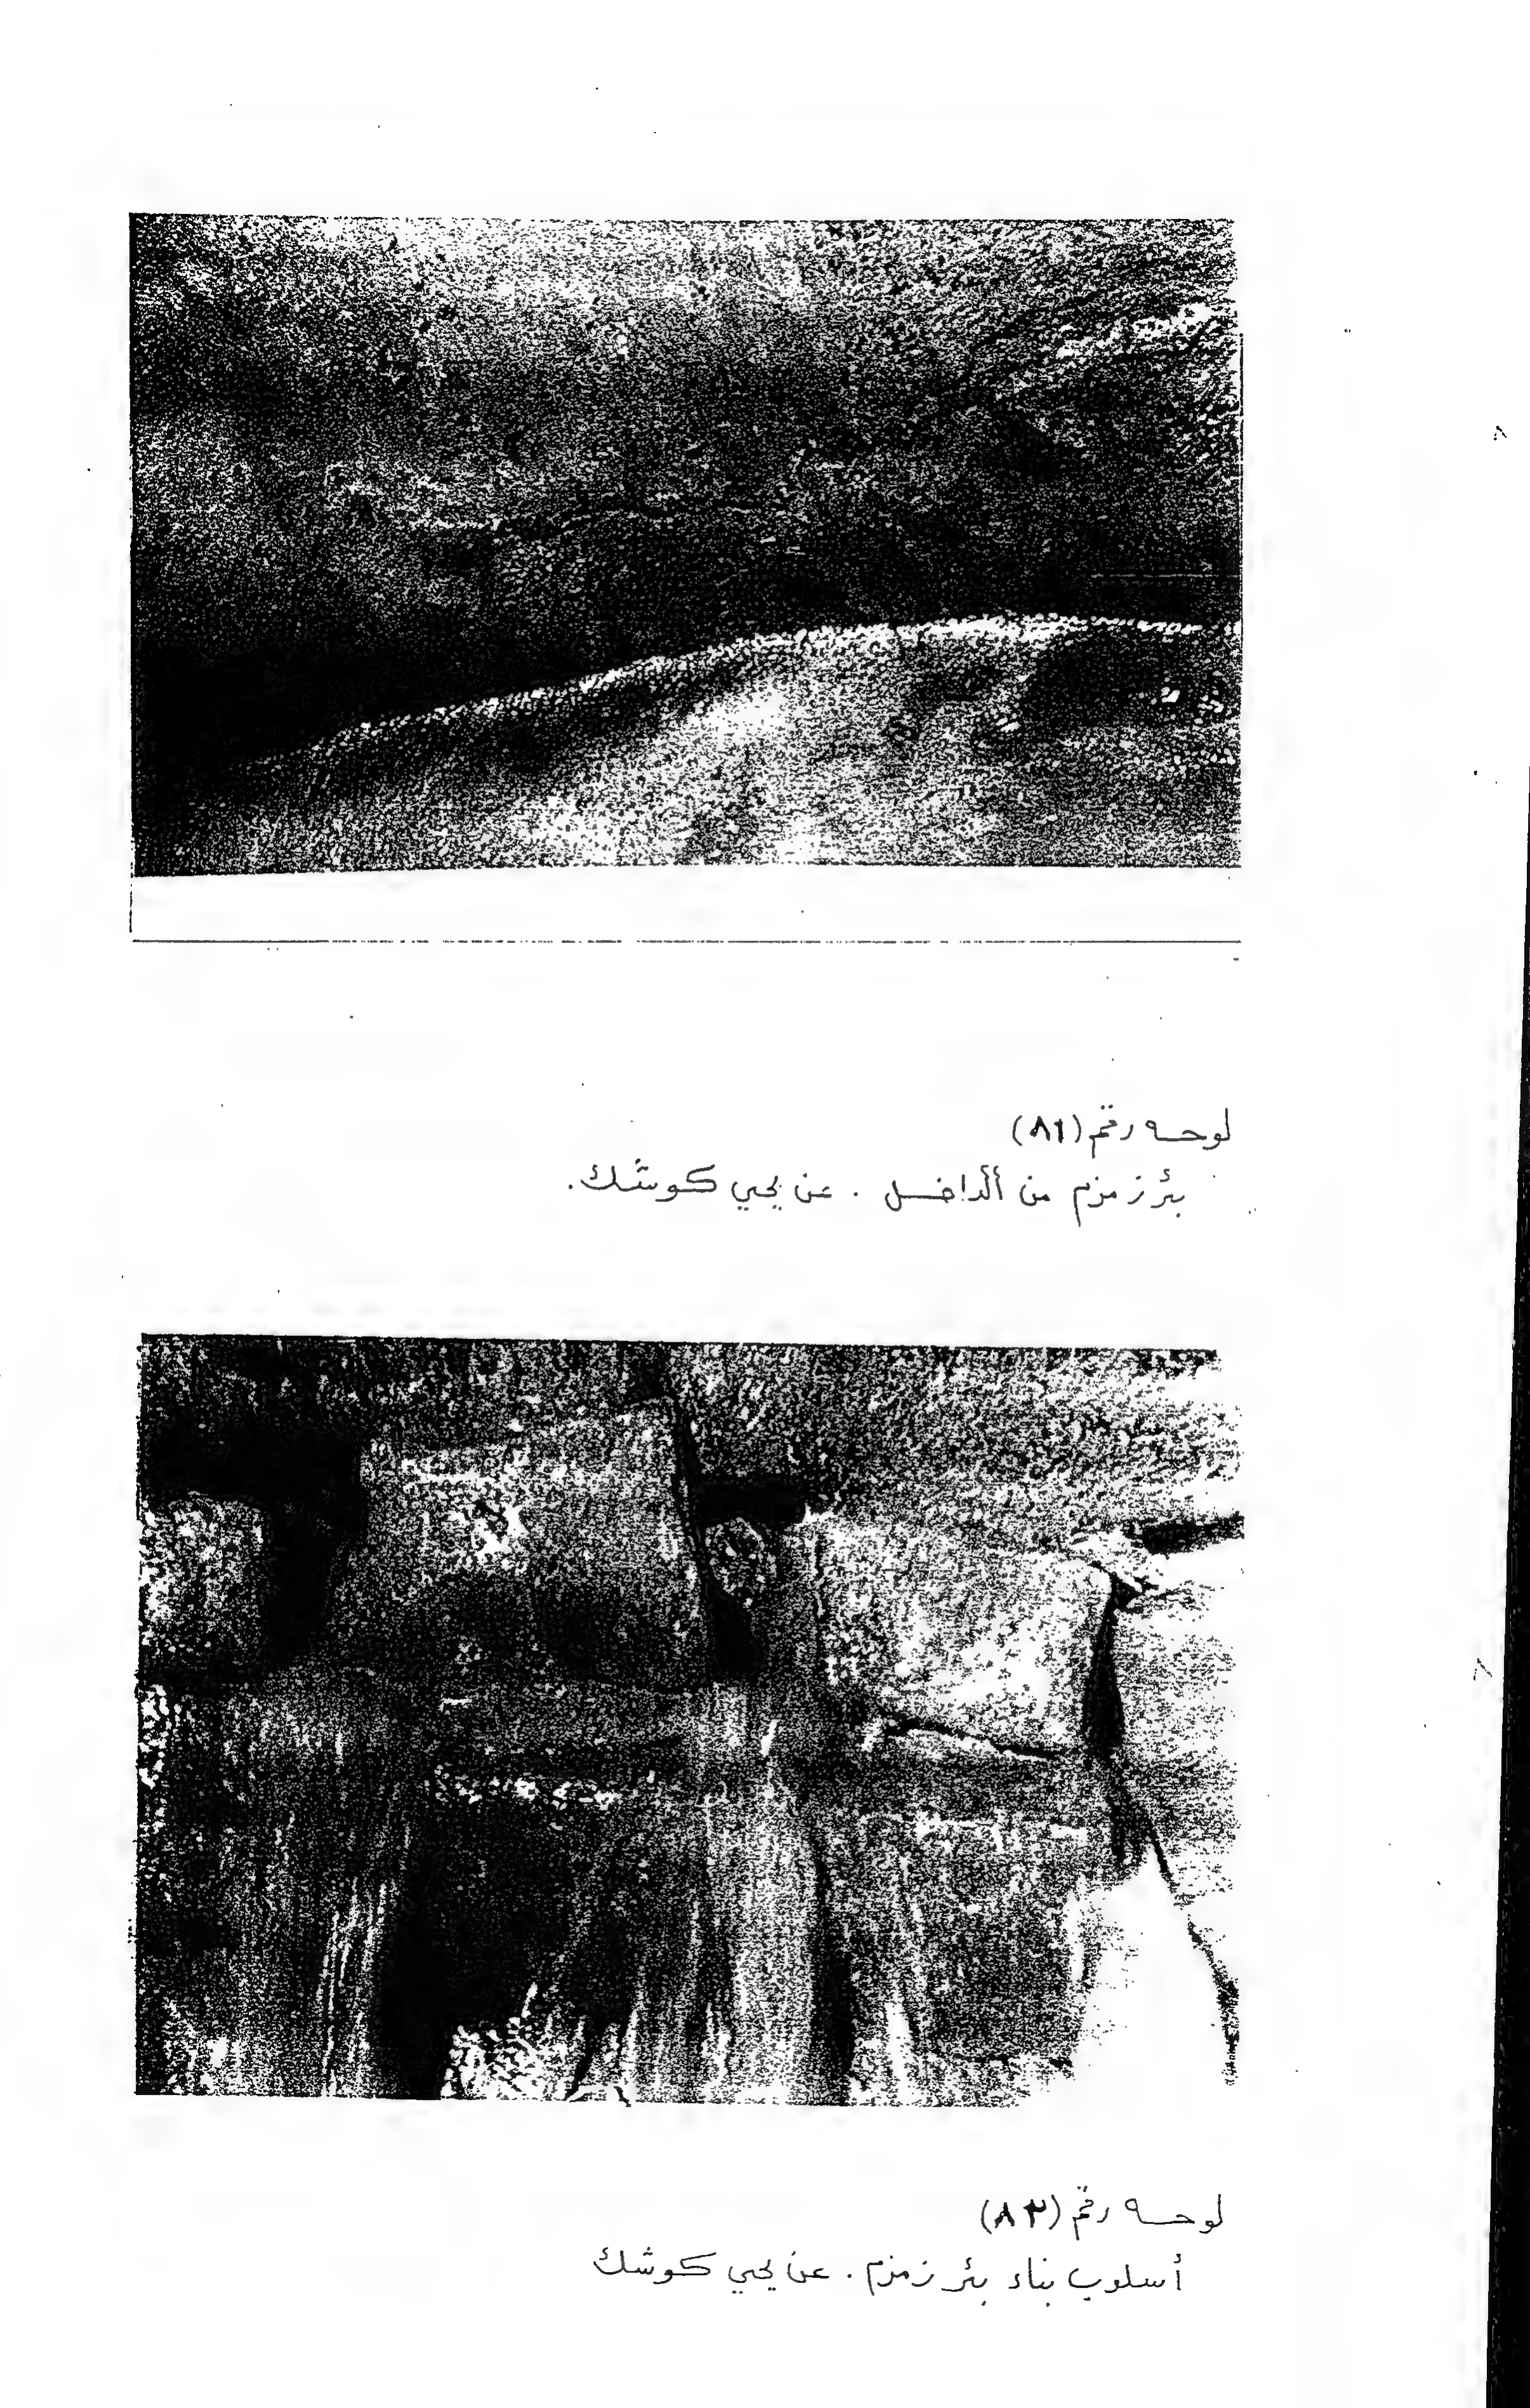 لوحـه رقم (٨١)
بئر زمزم من الداخـل . عن يحيى كوشك.
لوحـه رقم (٨٢)
أسلوب بناء بئر زمزم . عن يحيى كوشك